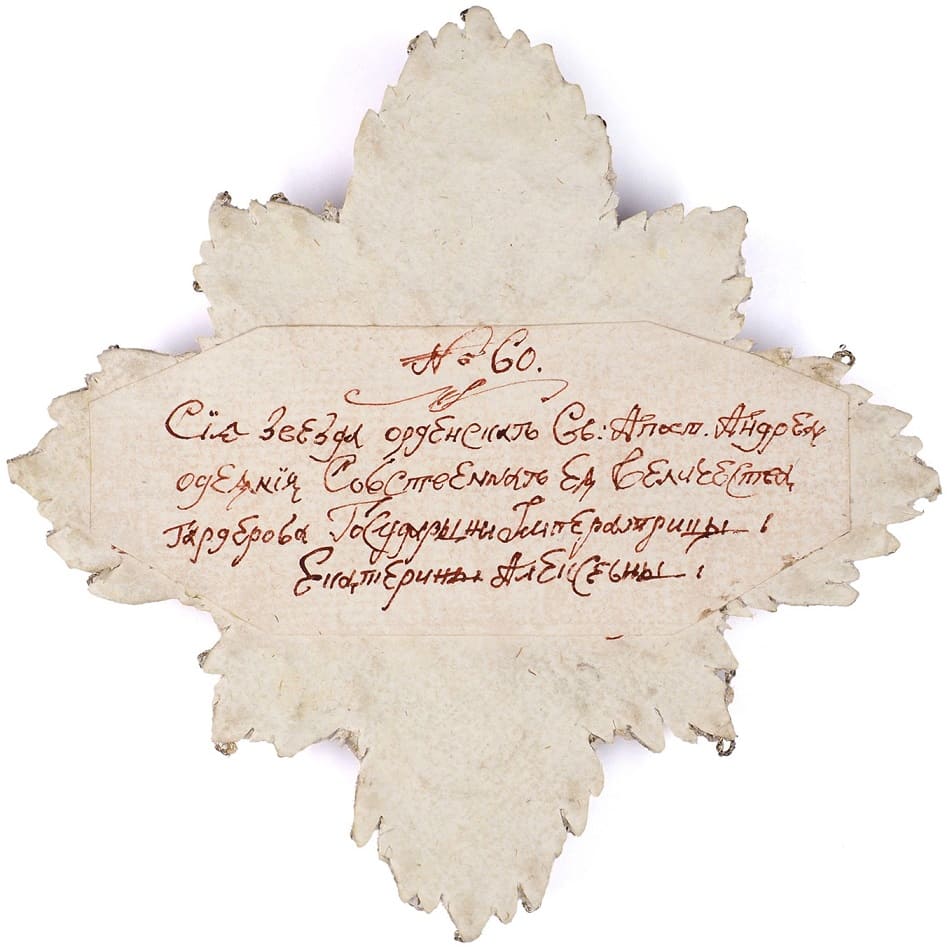 № 60.
Сїя звезда орденскаѧ Св: Апост. Андреѧ
одеѧнїя Собственнаѧ Еѧ Величества
гардероба Государыни Императрицы
Екатерины Алексевны